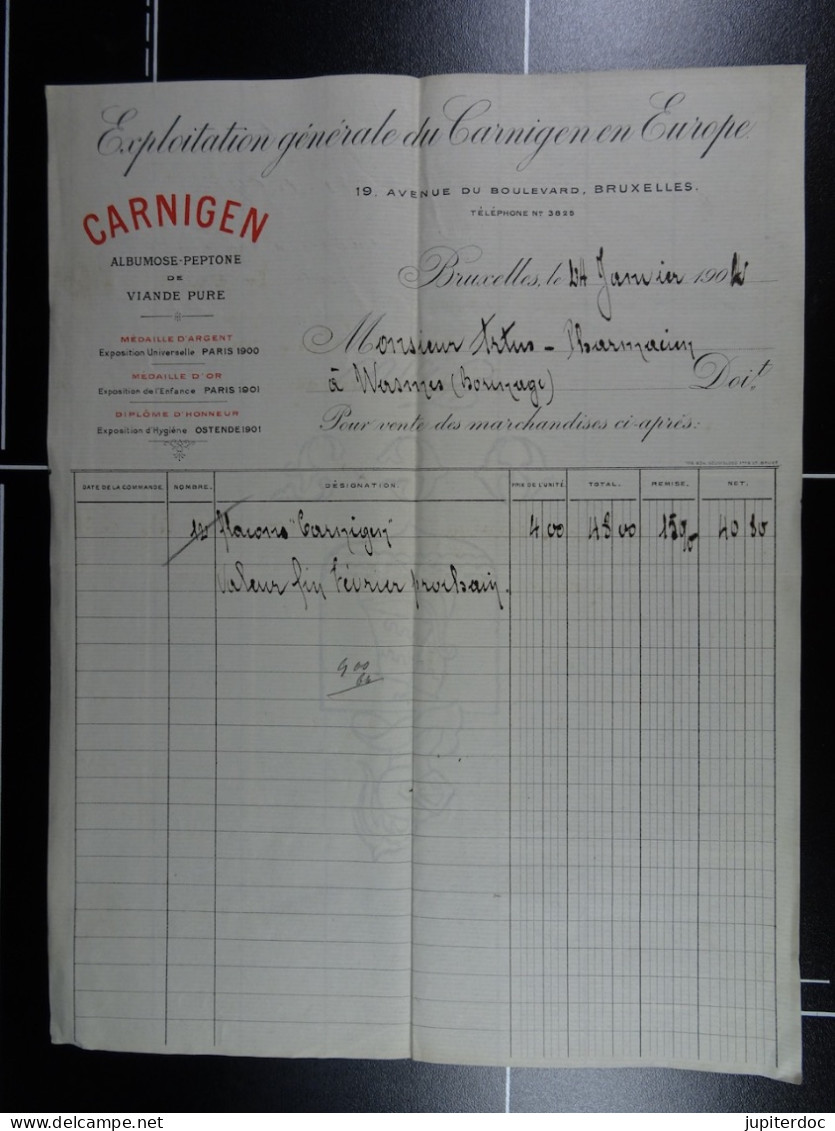 Exploitation générale du Carnigen en Europe.
19, AVENUE DU BOULEVARD, BRUXELLES.
TÉLÉPHONE Nº 3825
CARNIGEN
ALBUMOSE-PEPTONE
DE
VIANDE PURE
MÉDAILLE D'ARGENT
Exposition Universelle PARIS 1900
MÉDAILLE D'OR
Exposition de l'Enfance PARIS 1901
DIPLÔME D'HONNEUR
Exposition d'Hygiène OSTENDE 1901
Bruxelles, le 24 Janvier 1902
Monsieur Artus - Pharmacien
à Wasmes (Borinage) Doit
Pour vente des marchandises ci-après:
DATE DE LA COMMANDE. NOMBRE. DÉSIGNATION. PRIX DE L'UNITÉ. TOTAL. REMISE. NET.
12 flacons "Carnigen" 4 00 48 00 15% 40 80
Valeur fin Février prochain.
jupiterdoc